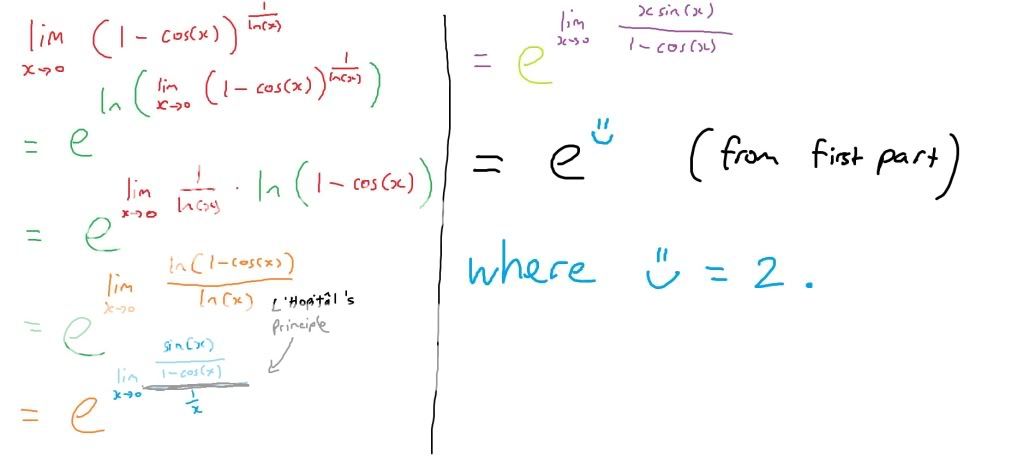 lim x→0 (1 - cos(x))^(1/ln(x))
= e^(ln(lim x→0 (1 - cos(x))^(1/ln(x))))
= e^(lim x→0 1/ln(x) · ln(1 - cos(x)))
= e^(lim x→0 ln(1-cos(x))/ln(x))
L'Hopitâl's
Principle
= e^(lim x→0 (sin(x)/(1-cos(x)))/(1/x))
= e^(lim x→0 x sin(x)/(1-cos(x)))
= e^ü (from first part)
where ü = 2.